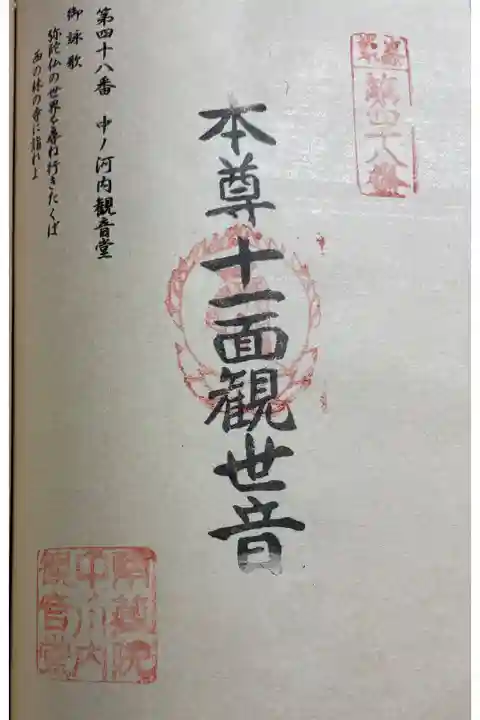 第四十八番
本尊十一面観世音
第四十八番 中ノ河内観音堂
御詠歌
弥陀仏の世界を尋ね行きたくば
西の林の寺に詣れよ
中ノ河内
観音堂